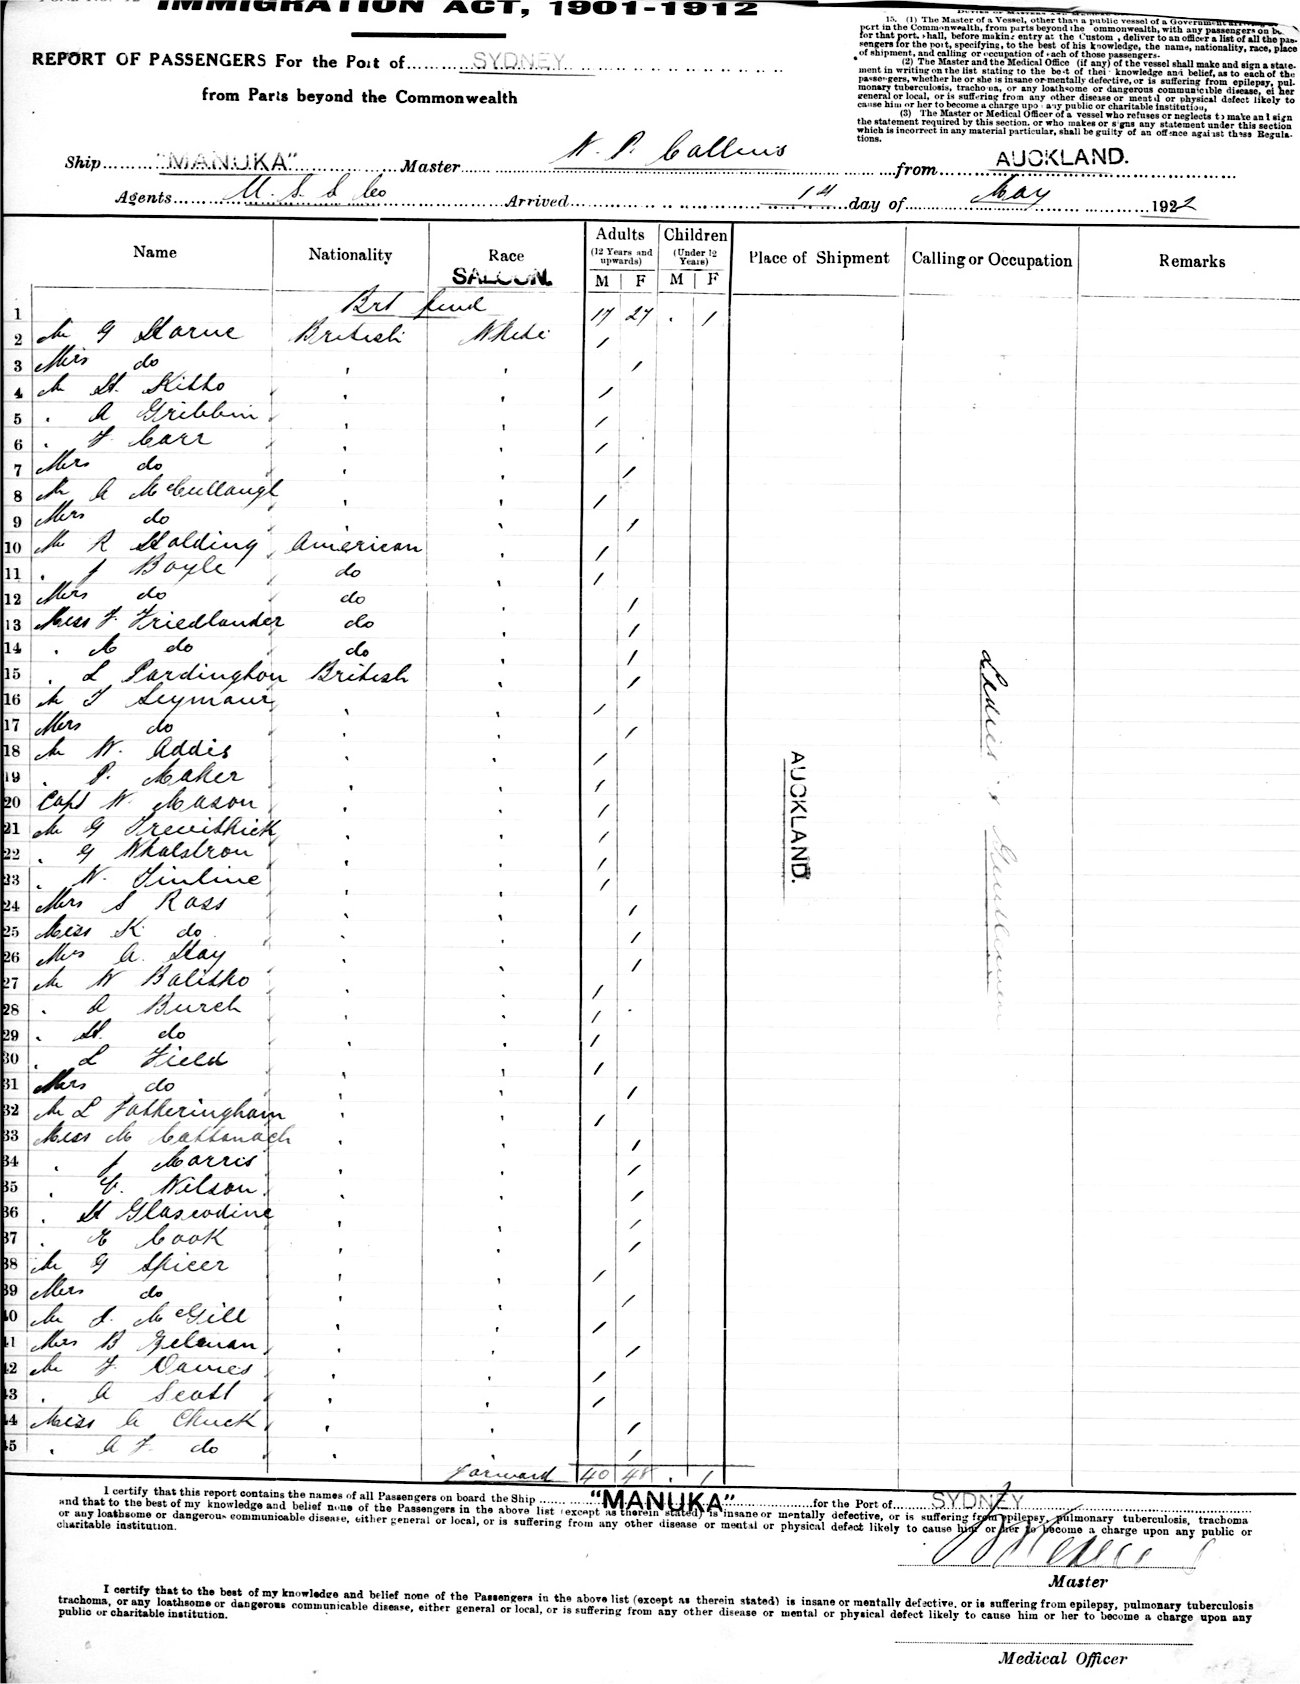 IMMIGRATION ACT, 1901-1912
REPORT OF PASSENGERS For the Port of SYDNEY
from Parts beyond the Commonwealth
15. (1) The Master of a Vessel, other than a public vessel of a Government arriving
port in the Commonwealth, from parts beyond the Commonwealth, with any passengers on
for that port, shall, before making entry at the Custom, deliver to an officer a list of all the pas-
sengers for the port, specifying, to the best of his knowledge, the name, nationality, race, place
of shipment, and calling or occupation of each of those passengers.
(2) The Master and the Medical Office (if any) of the vessel shall make and sign a state-
ment in writing on the list stating to the best of their knowledge and belief, as to each of the
passengers, whether he or she is insane or mentally defective, or is suffering from epilepsy, pul-
monary tuberculosis, trachoma, or any loathsome or dangerous communicable disease, either
general or local, or is suffering from any other disease or mental or physical defect likely to
cause him or her to become a charge upon any public or charitable institution,
(3) The Master or Medical Officer of a vessel who refuses or neglects to make and sign
the statement required by this section, or who makes or signs any statement under this section
which is incorrect in any material particular, shall be guilty of an offence against these Regula-
tions.
Ship "MANUKA" Master N. P. Collins from AUCKLAND.
Agents U. S. S. Co Arrived 14 day of May 1922
Name Nationality Race Adults (12 Years and upwards) Children (Under 12 Years) Place of Shipment Calling or Occupation Remarks
SALOON. M F M F
1 Brt fwd 17 27 . 1
2 Mr G Horne British White /
3 Mrs do /
4 Mr H. Kitto /
5 . A Gribbin /
6 . F Carr /
7 Mrs do /
8 Mr A McCullaugh /
9 Mrs do /
10 Mr R Holding American /
11 . J Boyle do /
12 Mrs do do /
13 Miss F Friedlander do /
14 . M do do /
15 . L Pardington British /
16 Mr T Seymour /
17 Mrs do /
18 Mr W. Addis /
19 . P. Maher /
20 Capt W. Mason /
21 Mr G Trewithick /
22 . G Whalstrom /
23 . W. Tinline /
24 Mrs S Ross /
25 Miss K do /
26 Mrs A. Hay /
27 Mr W Balisko /
28 . A Burch /
29 . H. do /
30 . L Field /
31 Mrs do /
32 Mr L Fotheringham /
33 Miss M Cattanach /
34 . J Morris /
35 . C. Wilson /
36 . H Glascodine /
37 . E Cook /
38 Mr G Spicer /
39 Mrs do /
40 Mr J. McGill /
41 Mrs B Gelman /
42 Mr F. Davies /
43 . A Scott /
44 Miss A Chuck /
45 . A F do /
AUCKLAND.
Ladies & Gentlemen
forward 40 48 . 1
I certify that this report contains the names of all Passengers on board the Ship "MANUKA" for the Port of SYDNEY
and that to the best of my knowledge and belief none of the Passengers in the above list (except as therein stated) is insane or mentally defective, or is suffering from epilepsy, pulmonary tuberculosis, trachoma
or any loathsome or dangerous communicable disease, either general or local, or is suffering from any other disease or mental or physical defect likely to cause him or her to become a charge upon any public or
charitable institution.
Master
I certify that to the best of my knowledge and belief none of the Passengers in the above list (except as therein stated) is insane or mentally defective, or is suffering from epilepsy, pulmonary tuberculosis
trachoma, or any loathsome or dangerous communicable disease, either general or local, or is suffering from any other disease or mental or physical defect likely to cause him or her to become a charge upon any
public or charitable institution.
Medical Officer